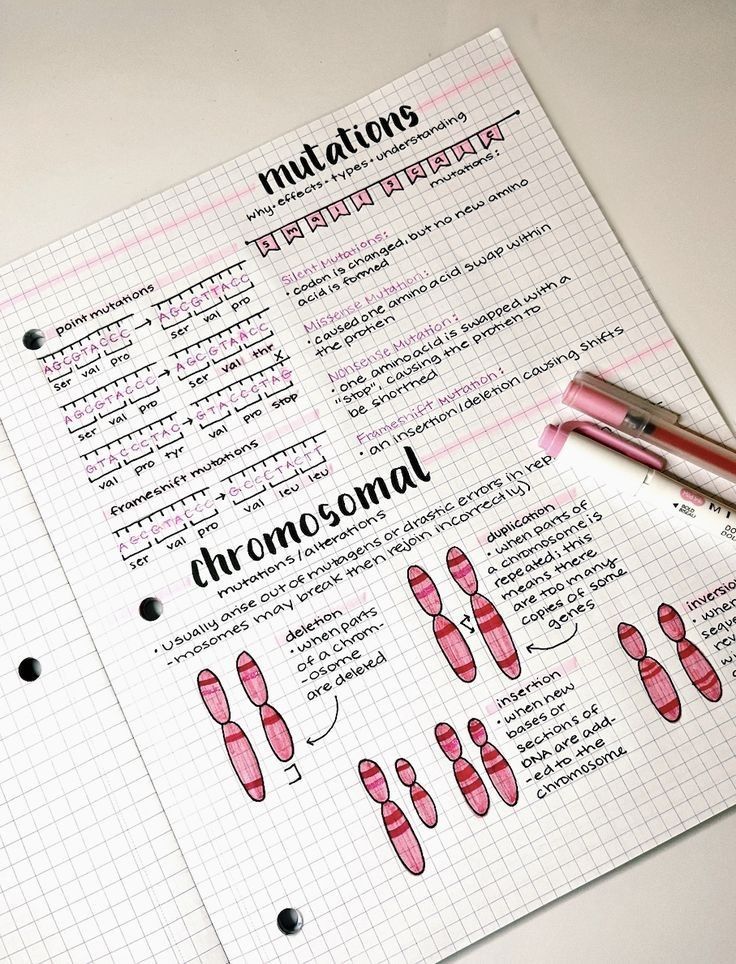 mutations
why • effects • types • understanding
small scale
mutations:
point mutations
AGCGTACCC → AGCGTTACC
ser val pro ser val pro
AGCGTACCC → AGCGTAACC
ser val pro ser val thr
GTACCCTAC → GTACCCTAG
val pro tyr val pro stop
X
frameshift mutations
AGCGTACCC → GCCCTACTT
ser val pro val leu leu
Silent Mutations:
• codon is changed, but no new amino
acid is formed
Missense Mutation:
• caused one amino acid swap within
the protien
Nonsense Mutation:
• one amino acid is swapped with a
"stop", causing the protien to
be shortned
Frameshift Mutation:
• an insertion/deletion causing shifts
chromosomal
mutations/alterations
• usually arise out of mutagens or drastic errors in
-mosomes may break then rejoin incorrectly)
deletion
• when parts
of a chrom-
-osome
are deleted
duplication
• when parts of
a chromosome is
repeated; this
means there
are too many
copies of some
genes
insertion
• when new
bases or
sections of
DNA are add-
-ed to the
chromosome
inversion
• when